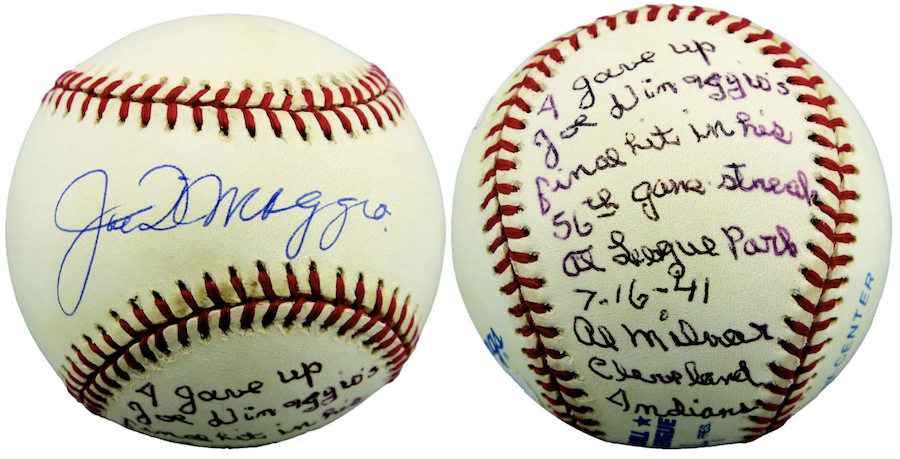 Joe DiMaggio
I gave up
Joe Dimaggio's
final hit in his
I gave up
Joe Dimaggio's
final hit in his
56th game streak
at League Park
7-16-41
Al Milnar
Cleveland
Indians
CENTER